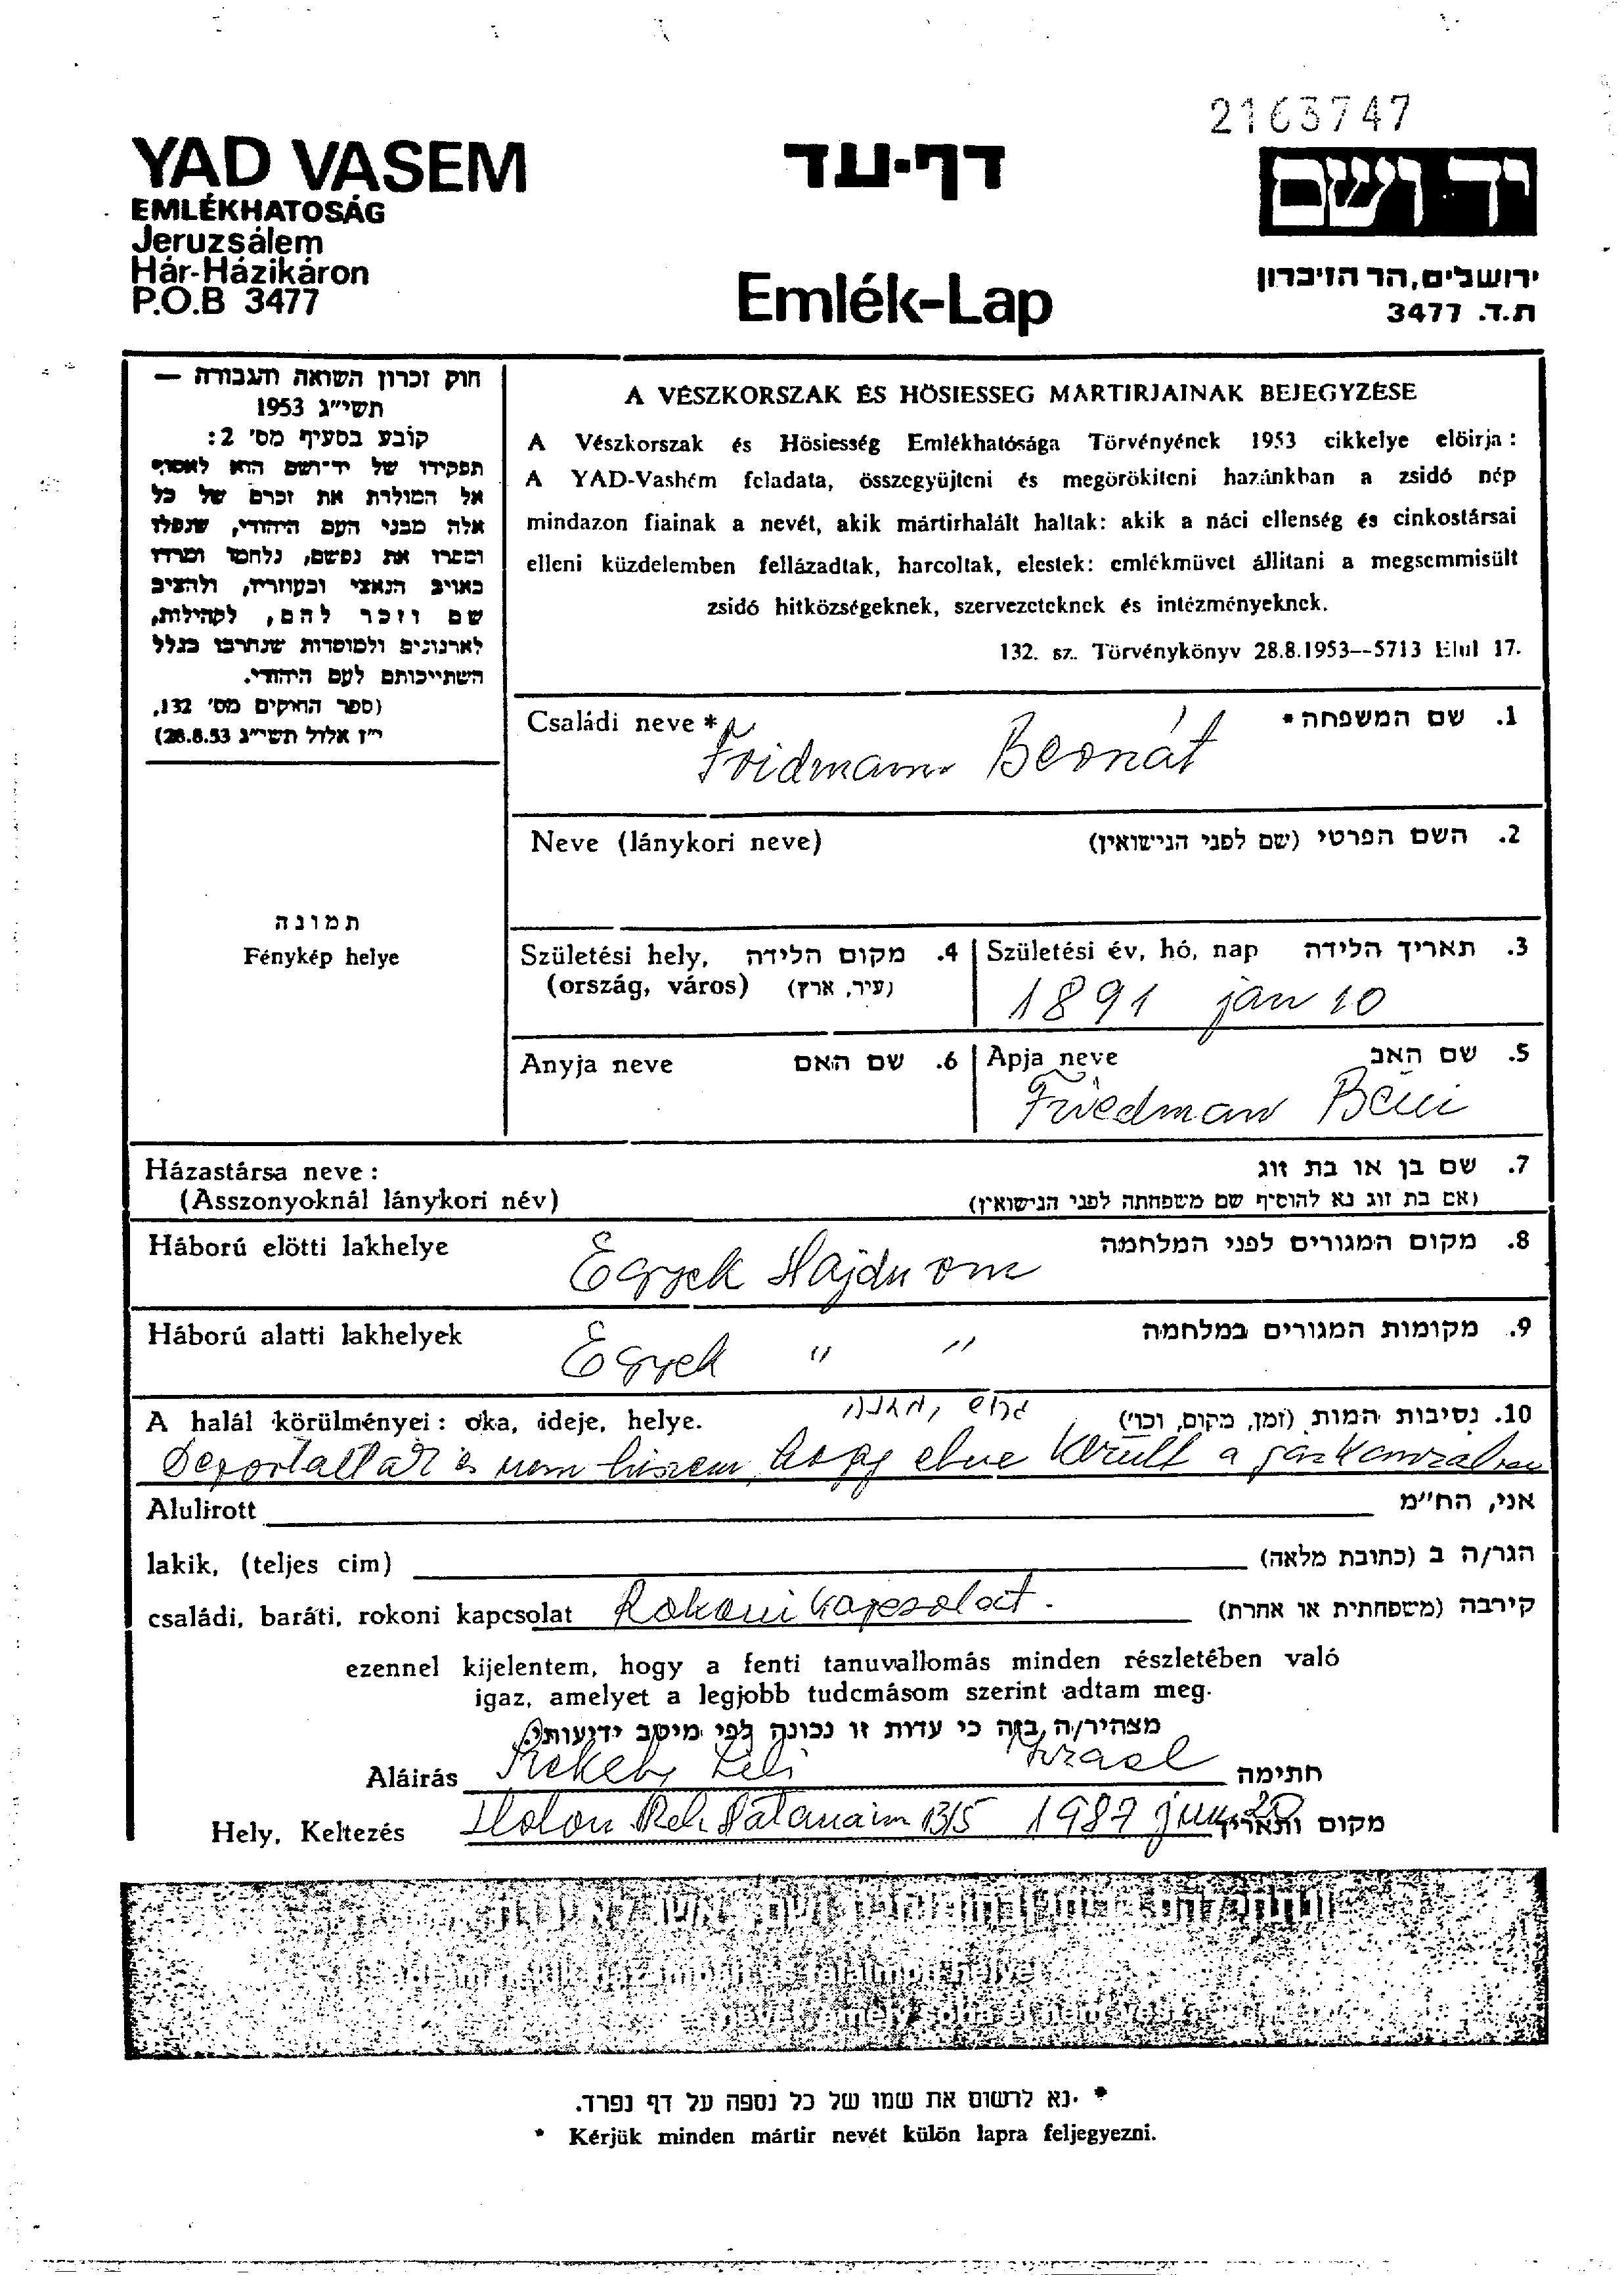 2163747
YAD VASEM
EMLÉKHATOSÁG
Jeruzsálem
Hár-Házikáron
P.O.B 3477
דף-עד
Emlék-Lap
יד ושם
ירושלים, הר הזיכרון
ת.ד. 3477
חוק זכרון השואה והגבורה —
תשי"ג 1953
קובע בסעיף מס' 2:
תפקידו של יד-ושם הוא לאסוף
אל המולדת את זכרם של כל
אלה מבני העם היהודי, שנפלו
ומסרו את נפשם, נלחמו ומרדו
באויב הנאצי ובעוזריו, ולהציב
שם וזכר להם, לקהילות,
לארגונים ולמוסדות שנחרבו בגלל
השתייכותם לעם היהודי.
(ספר החוקים מס' 132,
י"ז אלול תשי"ג 28.8.53)
תמונה
Fénykép helye
A VÉSZKORSZAK ÉS HÖSIESSEG MARTIRJAINAK BEJEGYZÉSE
A Vészkorszak és Hösiesség Emlékhatósága Törvényének 1953 cikkelye elöirja:
A YAD-Vashém feladata, összegyüjteni és megörökiteni hazánkban a zsidó nép
mindazon fiainak a nevét, akik mártirhalált haltak: akik a náci ellenség és cinkostársai
elleni küzdelemben fellázadtak, harcoltak, elestek: emlékmüvet állitani a megsemmisült
zsidó hitközségeknek, szervezeteknek és intézményeknek.
132. sz. Törvénykönyv 28.8.1953--5713 Elul 17.
Családi neve * 1. שם המשפחה *
Fridmann Bernát
Neve (lánykori neve) 2. השם הפרטי (שם לפני הנישואין)
Születési hely, 4. מקום הלידה
(ország, város) (עיר, ארץ)
Születési év, hó, nap 3. תאריך הלידה
1891 jan 10
Anyja neve 6. שם האם
Apja neve 5. שם האב
Friedman Béni
Házastársa neve: 7. שם בן או בת זוג
(Asszonyoknál lánykori név) (אם בת זוג נא להוסיף שם משפחתה לפני הנישואין)
Háború elötti lakhelye 8. מקום המגורים לפני המלחמה
Egyek Hajdu
Háború alatti lakhelyek 9. מקומות המגורים במלחמה
Egyek " "
A halál körülményei: oka, ideje, helye. 10. נסיבות המות (זמן, מקום, וכו')
Deportalták és nem hiszem hogy elve került a gázkamrában
Alulirott אני, הח"מ
lakik, (teljes cim) הגר/ה ב (כתובת מלאה)
családi, baráti, rokoni kapcsolat Rokoni kapcsolat. קירבה (משפחתית או אחרת)
ezennel kijelentem, hogy a fenti tanuvallomás minden részletében való
igaz, amelyet a legjobb tudcmásom szerint adtam meg.
מצהיר/ה בזה כי עדות זו נכונה לפי מיטב ידיעותי.
Aláirás Lili Izrael חתימה
Hely, Keltezés Holon 13/5 1987 מקום ותאריך
* נא לרשום את שמו של כל נספה על דף נפרד.
* Kérjük minden mártir nevét külön lapra feljegyezni.